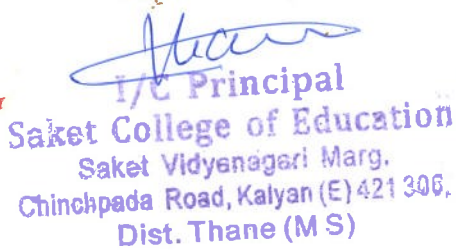 I/C Principal
Saket College of Education
Saket Vidyanagari Marg,
Chinchpada Road, Kalyan (E) 421 306,
Dist. Thane (M S)